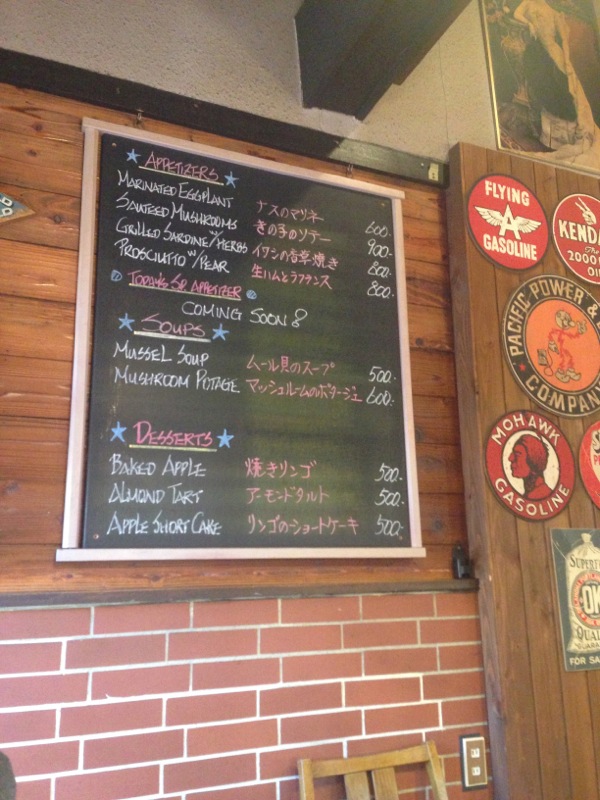 APPETIZERS
MARINATED EGGPLANT ナスのマリネ 600.-
SAUTEED MUSHROOMS きの子のソテー 900.-
GRILLED SARDINE W/HERBS イワシの香草焼き 800.-
PROSCIUTTO W/PEAR 生ハムとラフランス 800.-
TODAY'S SP. APPETIZER
COMING SOON!
SOUPS
MUSSEL SOUP ムール貝のスープ 500.-
MUSHROOM POTAGE マッシュルームのポタージェ 600.-
DESSERTS
BAKED APPLE 焼きリンゴ 500.-
ALMOND TART アーモンドタルト 500.-
APPLE SHORT CAKE リンゴのショートケーキ 500.-
FLYING
A
GASOLINE
KENDA
The
2000
OIL
PACIFIC POWER &
COMPAN
MOHAWK
GASOLINE
SUPER
OK
QUAL
FOR SA